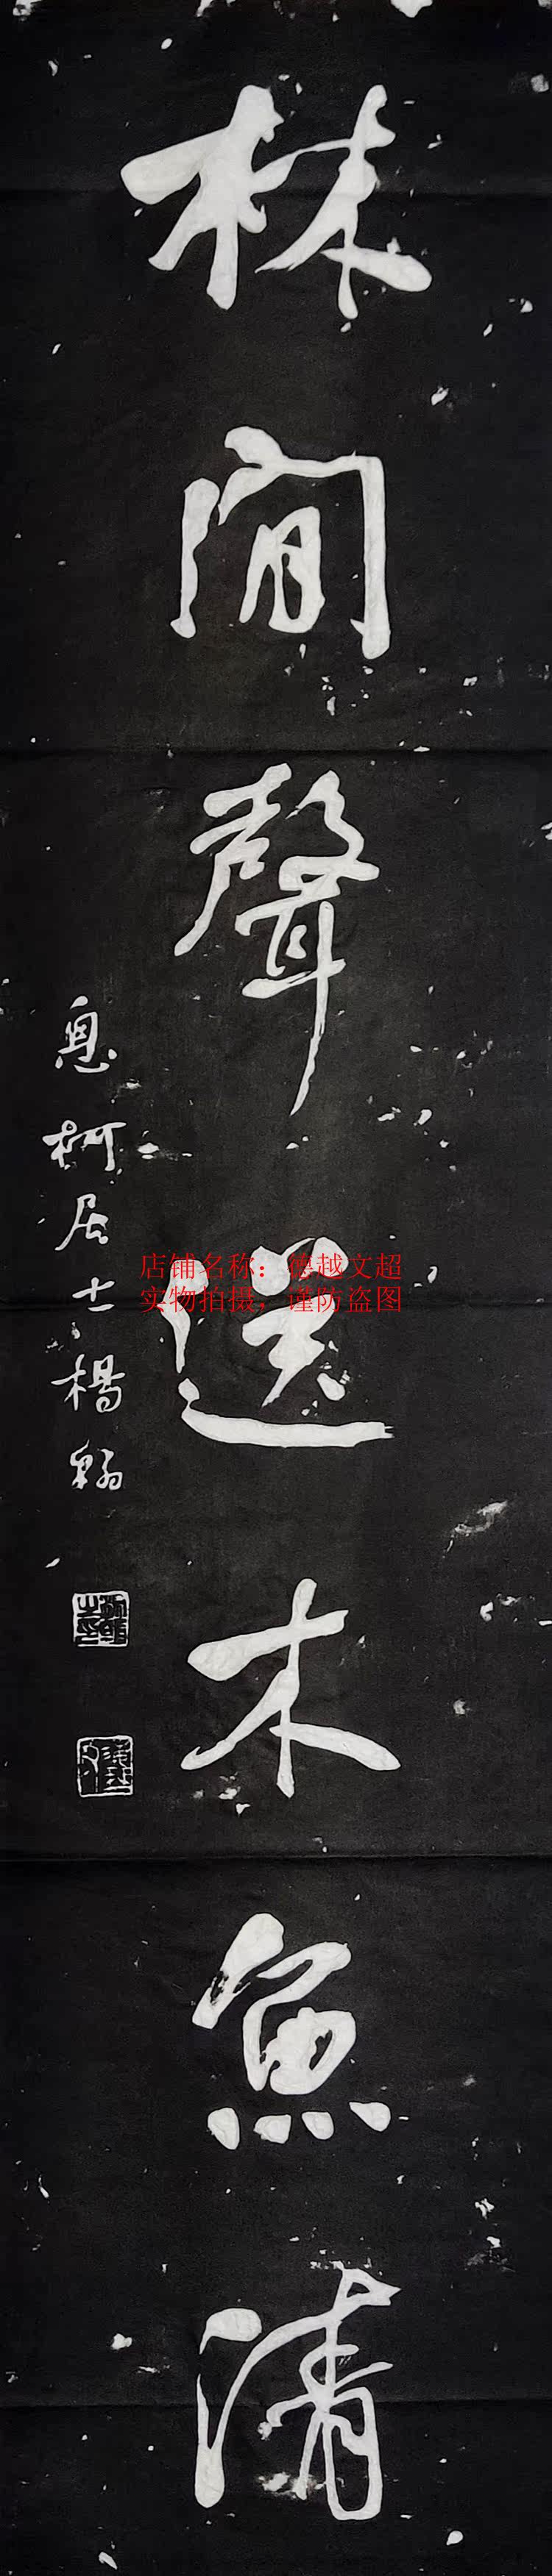 林間聲送木魚清
息柯居士楊翰
店铺名称：德越文超
实物拍摄，谨防盗图